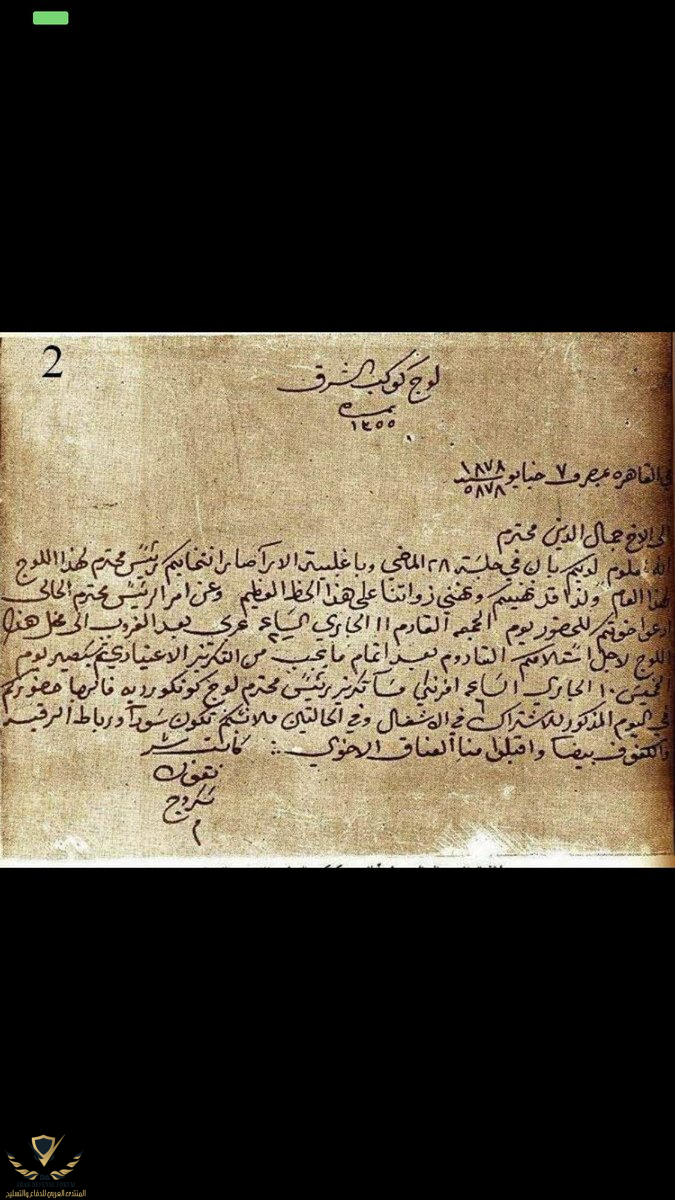 2
لوج كوكب الشرق
نمره
١٣٥٥
في القاهره بمصر في ٧ جنايو ١٨٧٨
٥٨٧٨
الى الاخ جمال الدين محترم
انه معلوم لديكم بان في جلسة ٢٨ الماضي وباغلبية الاراء صار انتخابكم رئيس محترم لهذا اللوج
لهذا العام ولذا قد نهنيكم ونهني ذواتنا على هذا الحظ العظيم وعن امر الرئيس محترم الحالي
ادعو اخوتكم للحضور يوم الجمعه القادم ١١ الجاري الساعه ٢ عربي بعد الغروب الى محل هذا
اللوج لاجل استلامكم القادوم بعد اتمام ما يجب من التكريز الاعتيادي ثم سيصير يوم
الخميس ١٠ الجاري الساعه ٦ افرنكي مساء تكريز رئيس محترم لوج كونكورديه فالرجا حضوركم
في اليوم المذكور للاشتراك في الاشغال وفي الحالتين ملابسكم تكون سوداء ورباط الرقبه
والكفوف بيضا واقبلوا منا العناق الاخوي
كاتب سر
نقولا
سكروج
م
المنتدى العربي للدفاع والتسليح